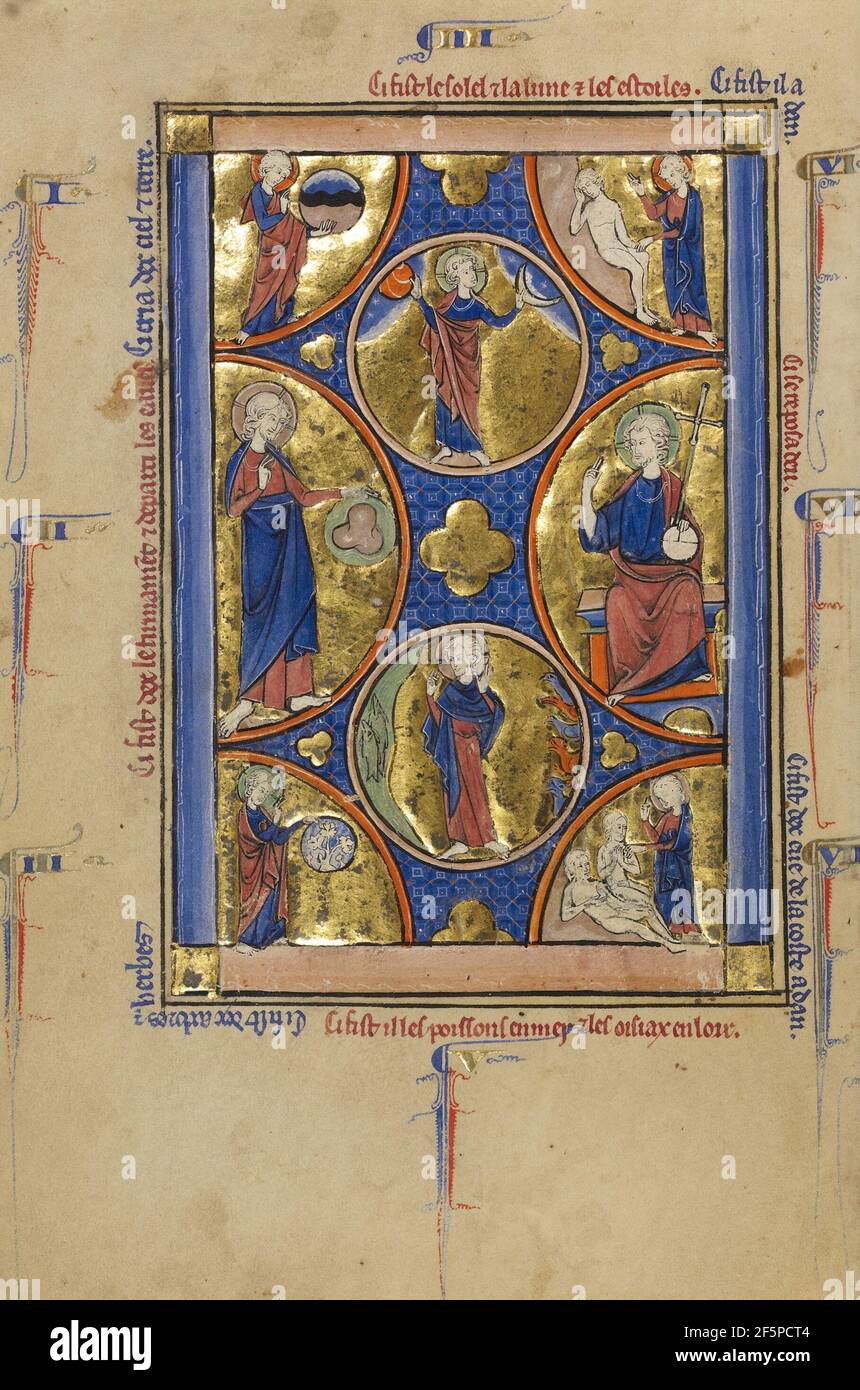 IIII
Ci fist le solel ⁊ la lune ⁊ les estoiles. Ci fist il a
dan.
I
Ci cria dex ciel ⁊ terre.
VI
II
Ci fist dex le firmament ⁊ departi les eaues
Ci se reposa dex.
VII
III
Ci fist dex arbres ⁊
herbes
VI
Ci fist dex eue de la coste adan.
Ci fist il les poissons en mer ⁊ les oisiax en loir.
V
alamy
alamy
Image ID: 2F5PCT4
www.alamy.com